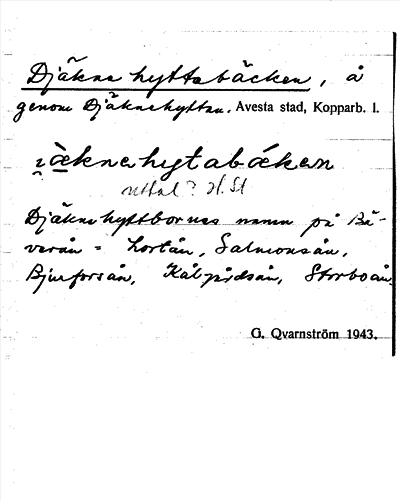 Djäknehyttabäcken, å
genom Djäknehyttan. Avesta stad, Kopparb. l.
i̯ὰ̱knehytabákan
uttal? H. St
Djäknehyttbornas namn på Bä-
verån = Lortån, Salmonsån,
Bjurforsån, Kålpådsån, Storboån.
G. Qvarnström 1943.